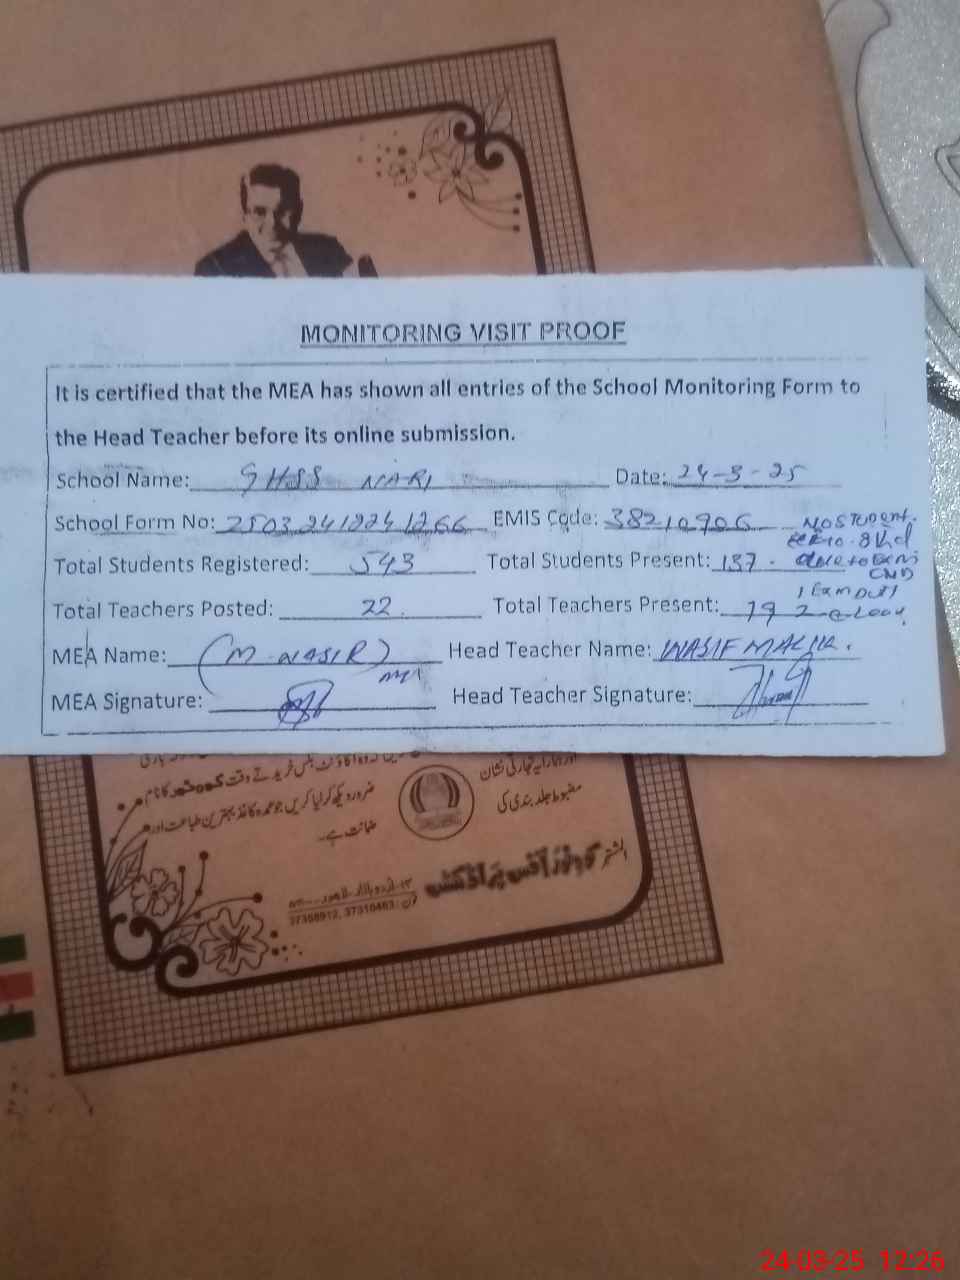 MONITORING VISIT PROOF
It is certified that the MEA has shown all entries of the School Monitoring Form to
the Head Teacher before its online submission.
School Name: GHSS NARI Date: 24-3-25
School Form No: 25032412241266 EMIS Code: 38210906 NO STUDENT
Total Students Registered: 543 Total Students Present: 137 due to Exam
Total Teachers Posted: 22 Total Teachers Present: 19 1 Exam Duty
MEA Name: (M. NASIR) Head Teacher Name: WASIF MALIK.
MEA Signature: Head Teacher Signature:
ضرور دیکھ کر لیا کریں جو عمدہ کاغذ بہترین طباعت اور
مضبوط جلد بندی کی
ضمانت ہے۔
24-03-25 12:26